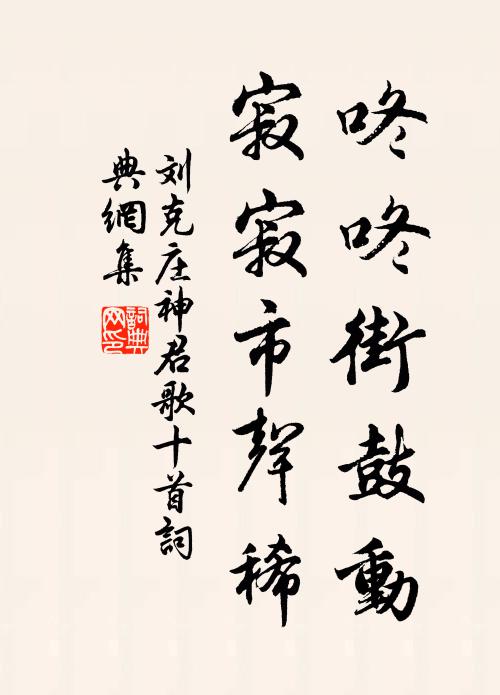 咚咚街鼓動
寂寂市聲稀
刘克庄神君歌十首詞
典網集
詞典网印